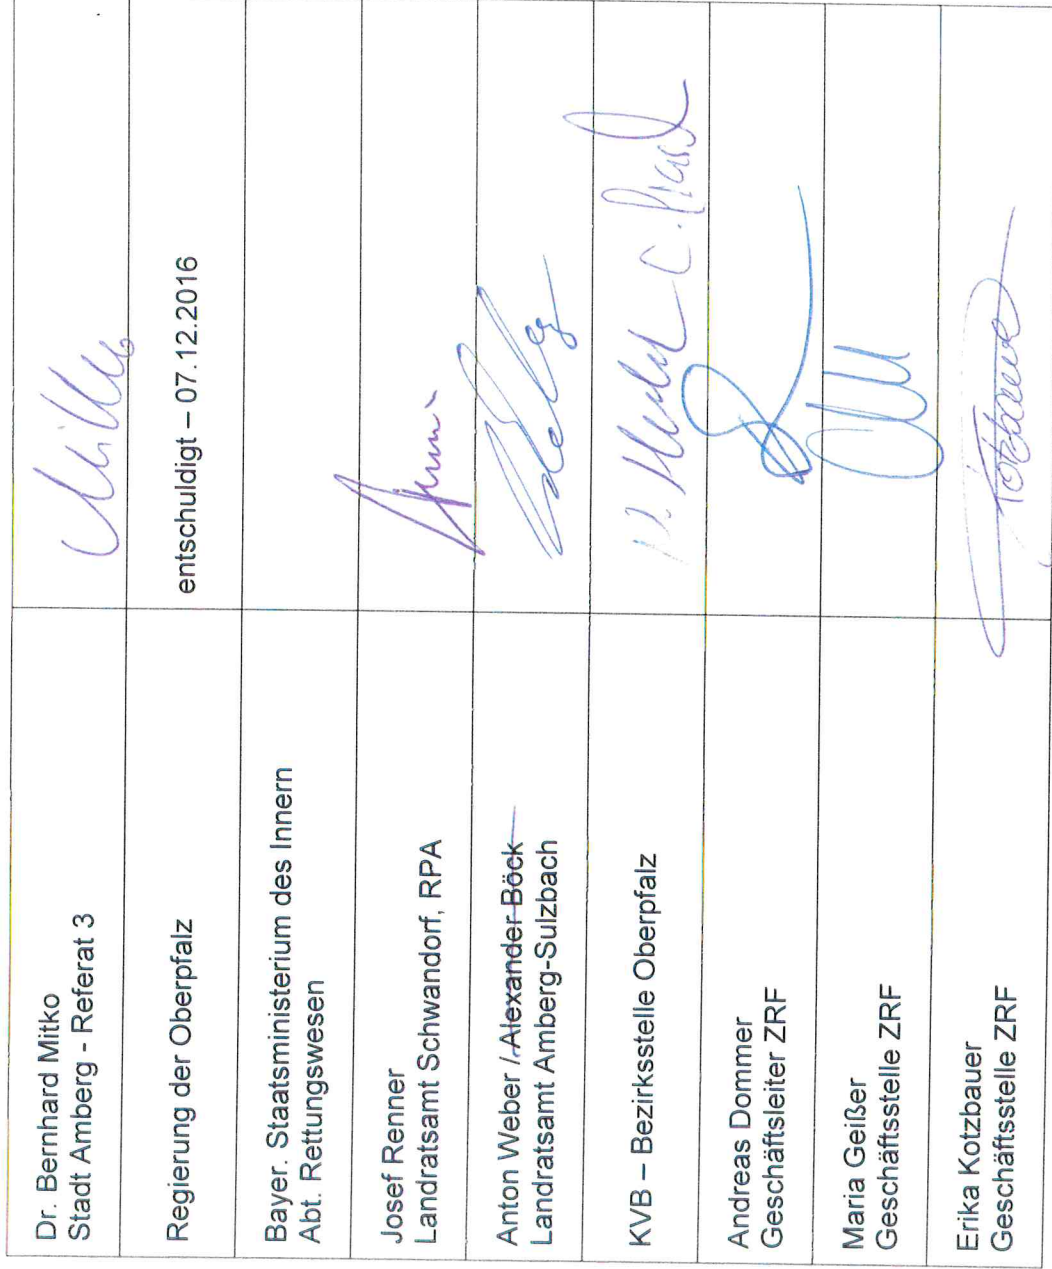 Dr. Bernhard Mitko
Stadt Amberg - Referat 3
Regierung der Oberpfalz
entschuldigt – 07.12.2016
Bayer. Staatsministerium des Innern
Abt. Rettungswesen
Josef Renner
Landratsamt Schwandorf, RPA
Anton Weber / Alexander Böck
Landratsamt Amberg-Sulzbach
KVB – Bezirksstelle Oberpfalz
Andreas Dommer
Geschäftsleiter ZRF
Maria Geißer
Geschäftsstelle ZRF
Erika Kotzbauer
Kotzbauer
Geschäftsstelle ZRF